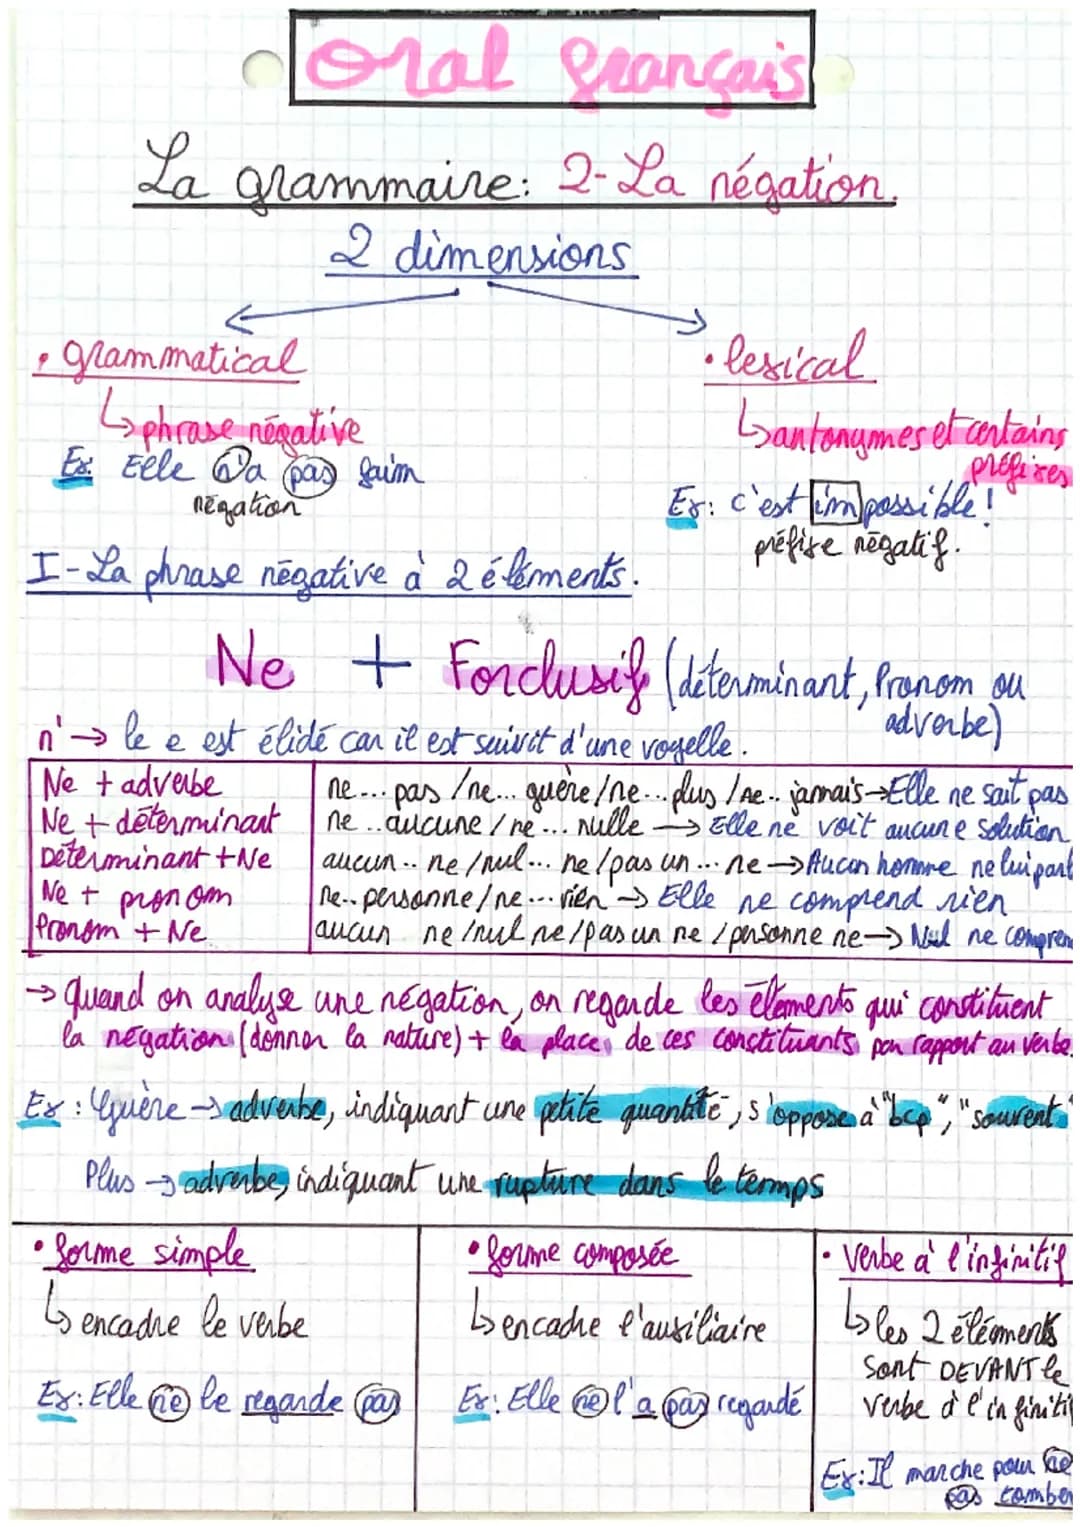 Oral français
La grammaire: 2-La négation.
2 dimensions
• grammatical
↳ phrase négative
Ex: Elle n'a pas faim
négation
• lexical
↳ antonymes et certains
préfixes
Ex: c'est impossible!
préfixe négatif.
I-La phrase négative à 2 éléments.
Ne + Forclusif (déterminant, Pronom ou
adverbe)
n' → le e est élidé car il est suivit d'une voyelle.
Ne + adverbe ne... pas /ne... guère/ne...plus /ne.. jamais→Elle ne sait pas
Ne + déterminant ne ..aucune / ne ... nulle → Elle ne voit aucune solution
Déterminant + Ne aucun .. ne /nul... ne /pas un ... ne → Aucun homme ne lui parl
Ne + pronom ne.. personne/ne ... rien → Elle ne comprend rien
Pronom + Ne aucun ne /nul ne /pas un ne /personne ne → Nul ne compren
→ Quand on analyse une négation, on regarde les éléments qui constituent
la négation (donner la nature) + la place de ces constituants par rapport au verbe.
Ex : Guère → adverbe, indiquant une petite quantité, s'oppose à "bcp", "souvent"
Plus → adverbe, indiquant une rupture dans le temps
• forme simple
↳ encadre le verbe
Ex: Elle ne le regarde pas
• forme composée
↳ encadre l'auxiliaire
Ex: Elle ne l'a pas regardé
• verbe à l'infinitif
↳ les 2 éléments
sont DEVANT le
verbe à l'infiniti
Ex: Il marche pour ne
pas tomber